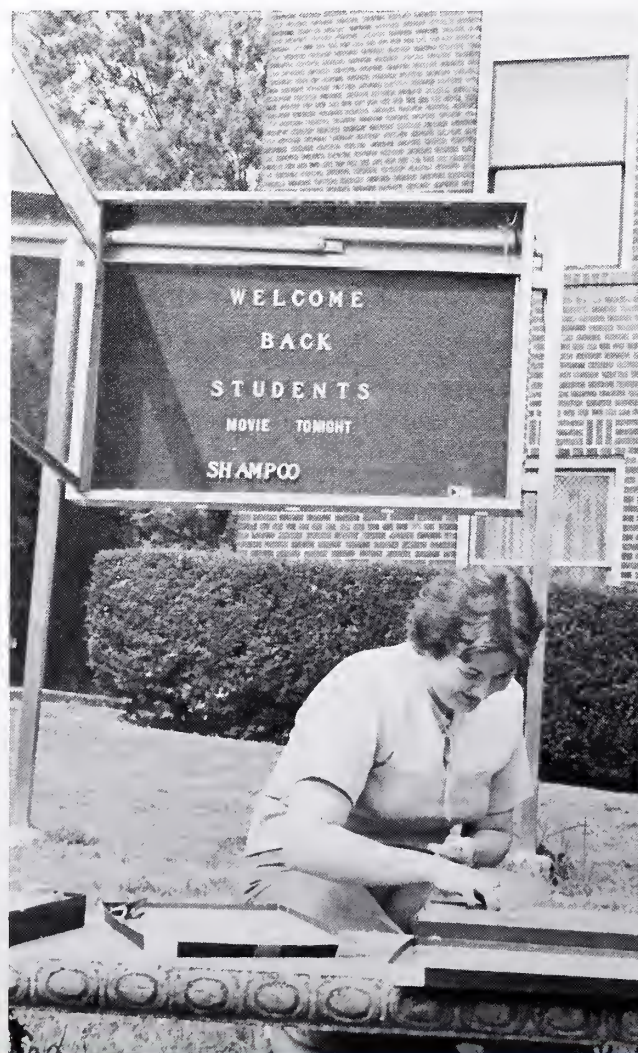 WELCOME
BACK
STUDENTS
MOVIE TONIGHT
SHAMPOO